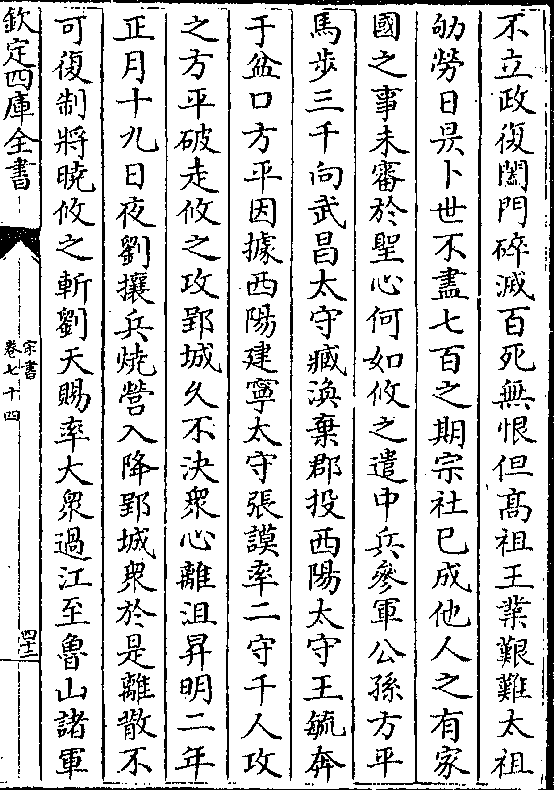 不立政復闔門碎滅百死無恨但髙祖王業艱難太祖
劬勞日昃卜世不盡七百之期宗社已成他人之有家
國之事未審於聖心何如攸之遣中兵參軍公孫方平
馬步三千向武昌太守臧渙棄郡投西陽太守王毓奔
于盆口方平因據西陽建寧太守張謨率二守千人攻
之方平破走攸之攻郢城久不決衆心離沮昇明二年
正月十九日夜劉攘兵燒營入降郢城衆於是離散不
可復制將曉攸之斬劉天賜率大衆過江至魯山諸軍
欽定四庫全書
宋書
卷七十四
四十三